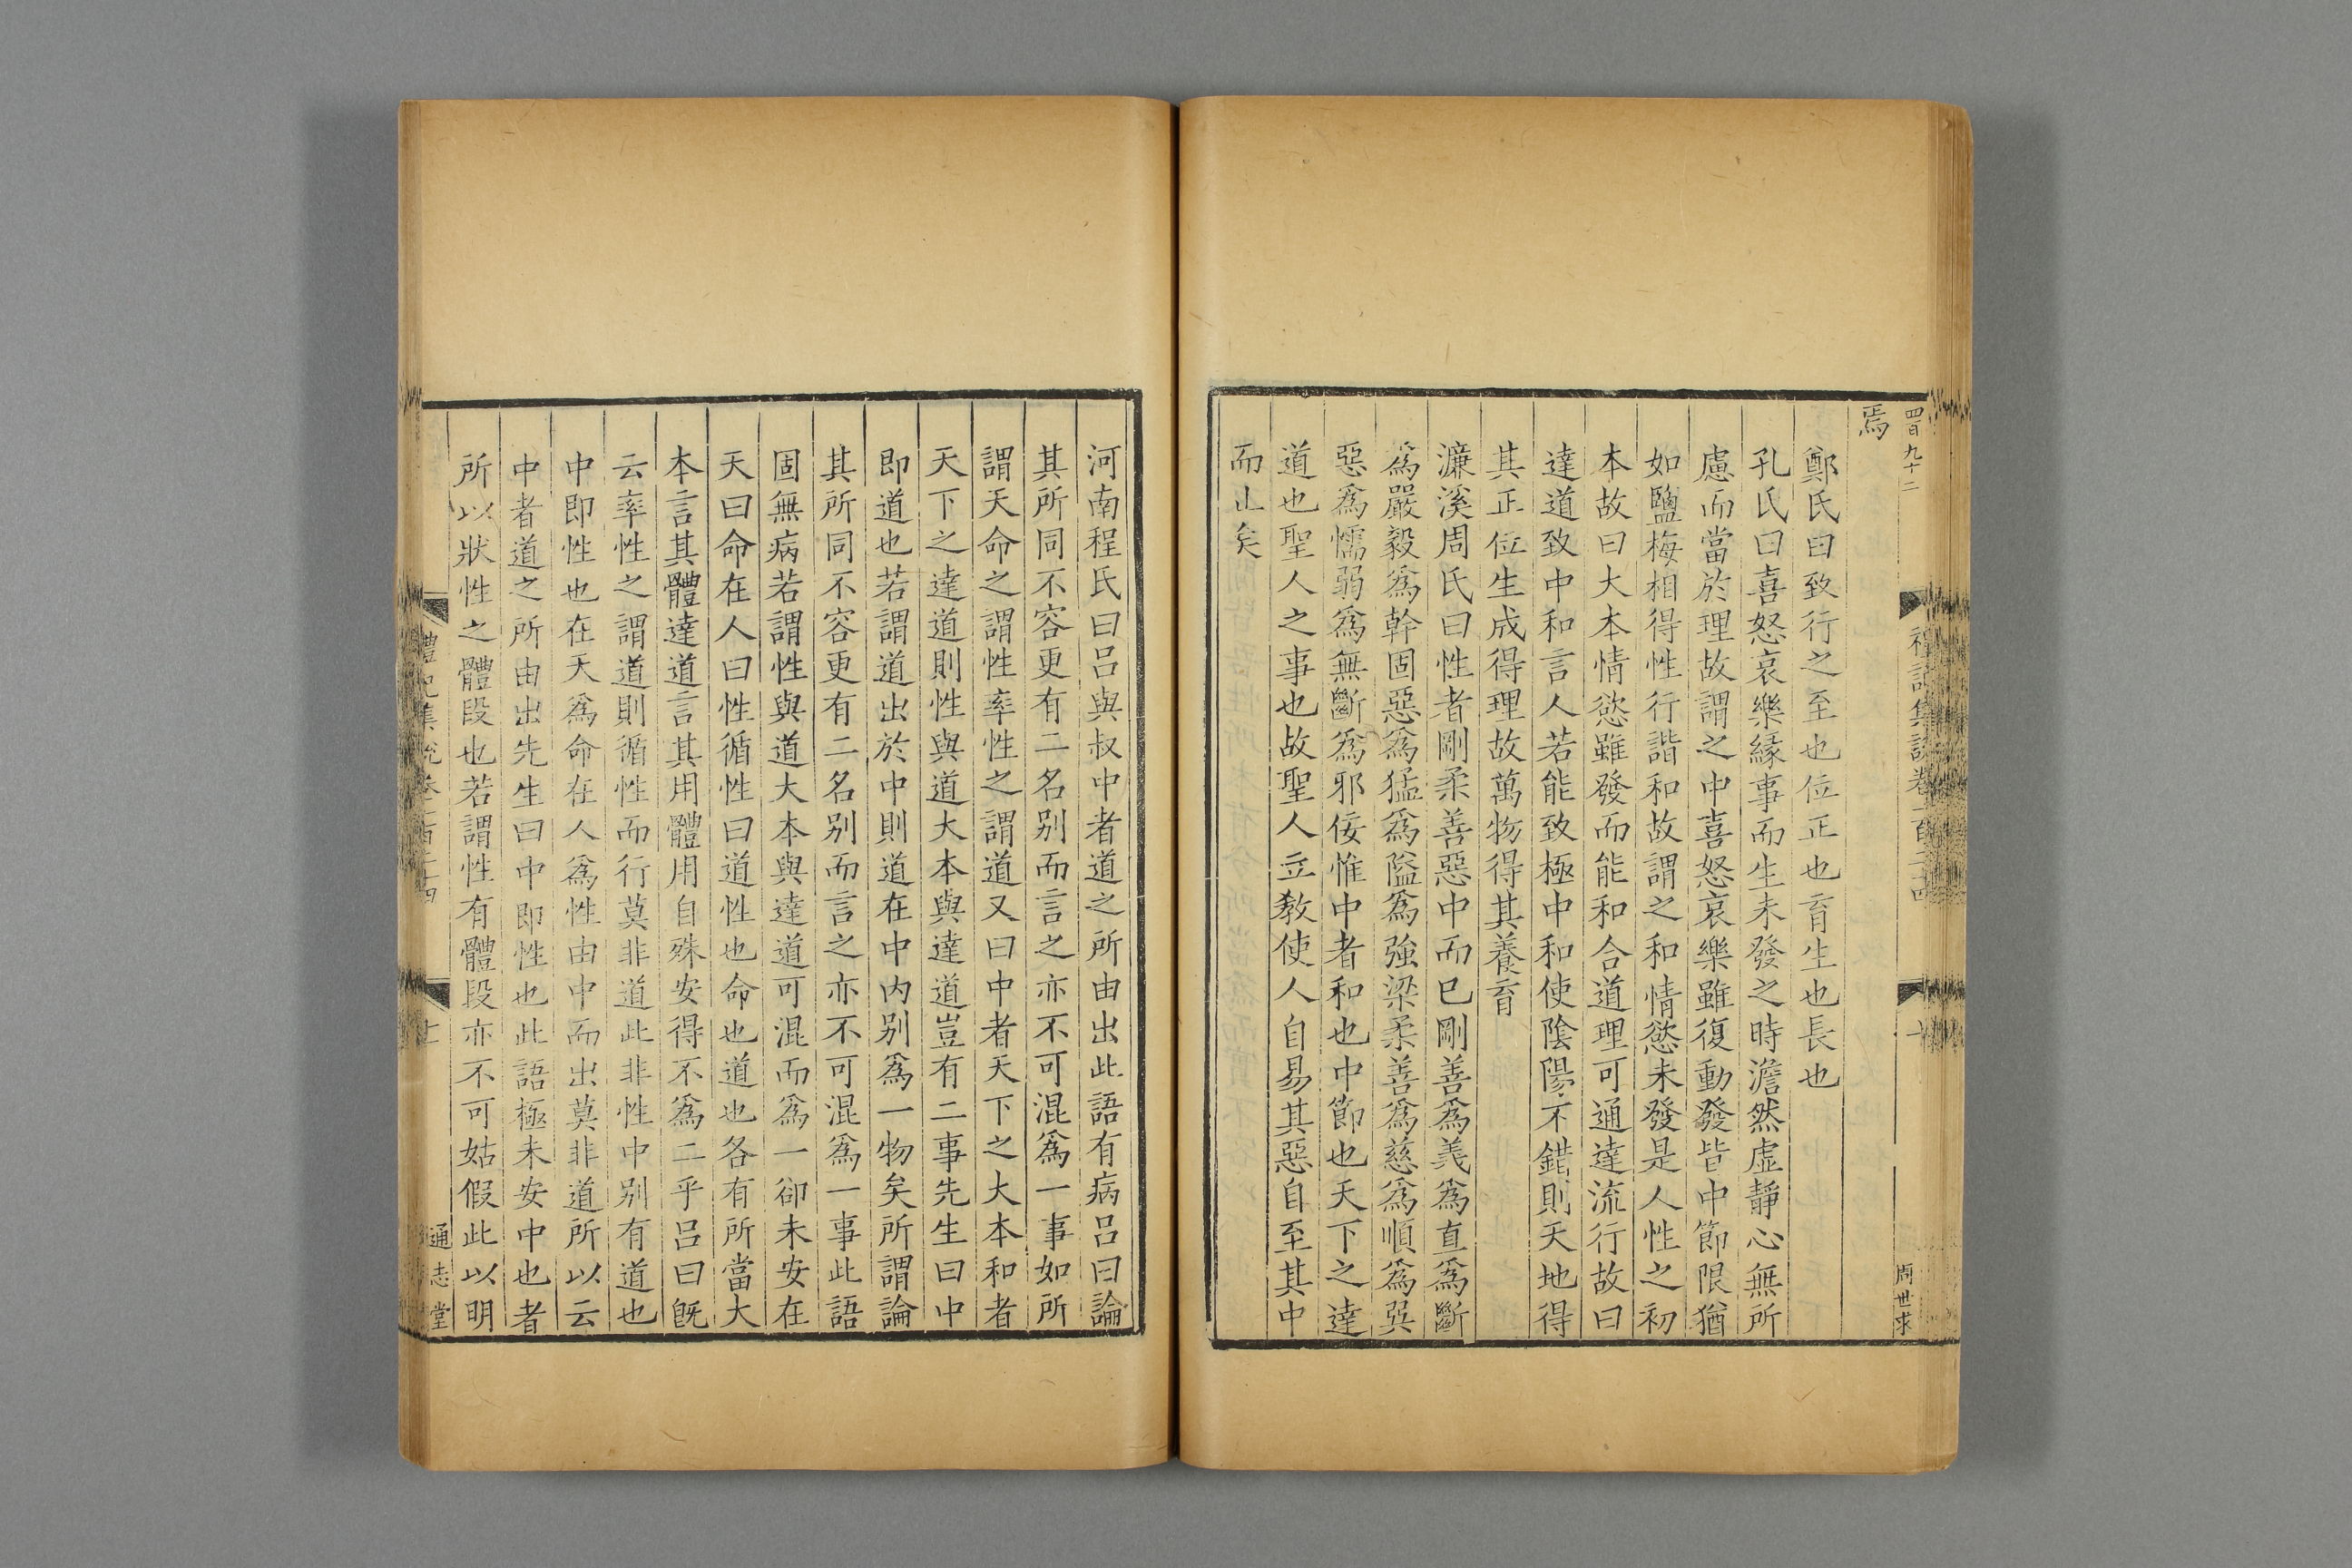 四百九十二
禮記集說卷一百二十四
周世求
焉
鄭氏曰致行之至也位正也育生也長也
孔氏曰喜怒哀樂緣事而生未發之時澹然虛靜心無所
慮而當於理故謂之中喜怒哀樂雖復動發皆中節限猶
如鹽梅相得性行諧和故謂之和情慾未發是人性之初
本故曰大本情慾雖發而能和合道理可通達流行故曰
達道致中和言人若能致極中和使陰陽不錯則天地得
其正位生成得理故萬物得其養育
濂溪周氏曰性者剛柔善惡中而已剛善爲義爲直爲斷
爲嚴毅爲幹固惡爲猛爲隘爲強梁柔善爲慈爲順爲巽
惡爲懦弱爲無斷爲邪佞惟中者和也中節也天下之達
道也聖人之事也故聖人立教使人自易其惡自至其中
而止矣
河南程氏曰呂與叔中者道之所由出此語有病呂曰論
其所同不容更有二名别而言之亦不可混爲一事如所
謂天命之謂性率性之謂道又曰中者天下之大本和者
天下之達道則性與道大本與達道豈有二事先生曰中
即道也若謂道出於中則道在中内别爲一物矣所謂論
其所同不容更有二名别而言之亦不可混爲一事此語
固無病若謂性與道大本與達道可混而爲一卻未安在
天曰命在人曰性循性曰道性也命也道也各有所當大
本言其體達道言其用體用自殊安得不爲二乎呂曰既
云率性之謂道則循性而行莫非道此非性中别有道也
中即性也在天爲命在人爲性由中而出莫非道所以云
中者道之所由出先生曰中即性也此語極未安中也者
所以狀性之體段也若謂性有體段亦不可姑假此以明
禮記集說卷一百二十四
十一
通志堂